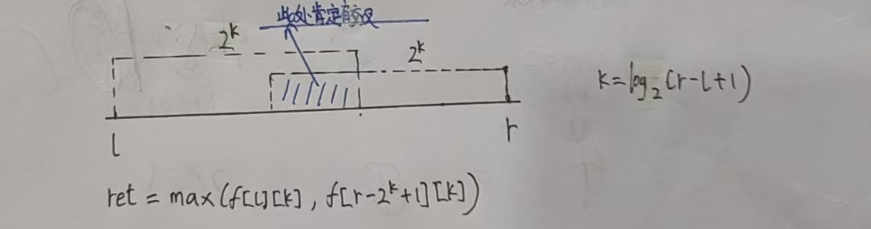 此处肯定有交叉
2^k
2^k
k=log₂(r-l+1)
l
r
ret = max(f[l][k], f[r-2^k+1][k])